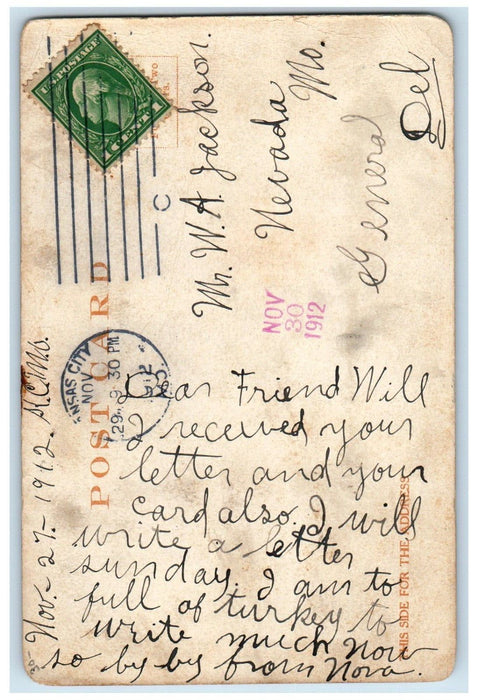 U.S. POSTAGE
1 CENT 1
C
KANSAS CITY
NOV
29
9 30 PM
MO.
POST CARD
THIS SIDE FOR THE ADDRESS
NOV
30
1912
Mr. W. A. Jackson.
Nevada
Mo.
General
Del
Nov-27-1912. K.C.Mo.
Dear Friend Will
I received your
letter and your
card also. I will
write a letter
sunday. I am to
full of turkey to
write much now
so by by from Nora.